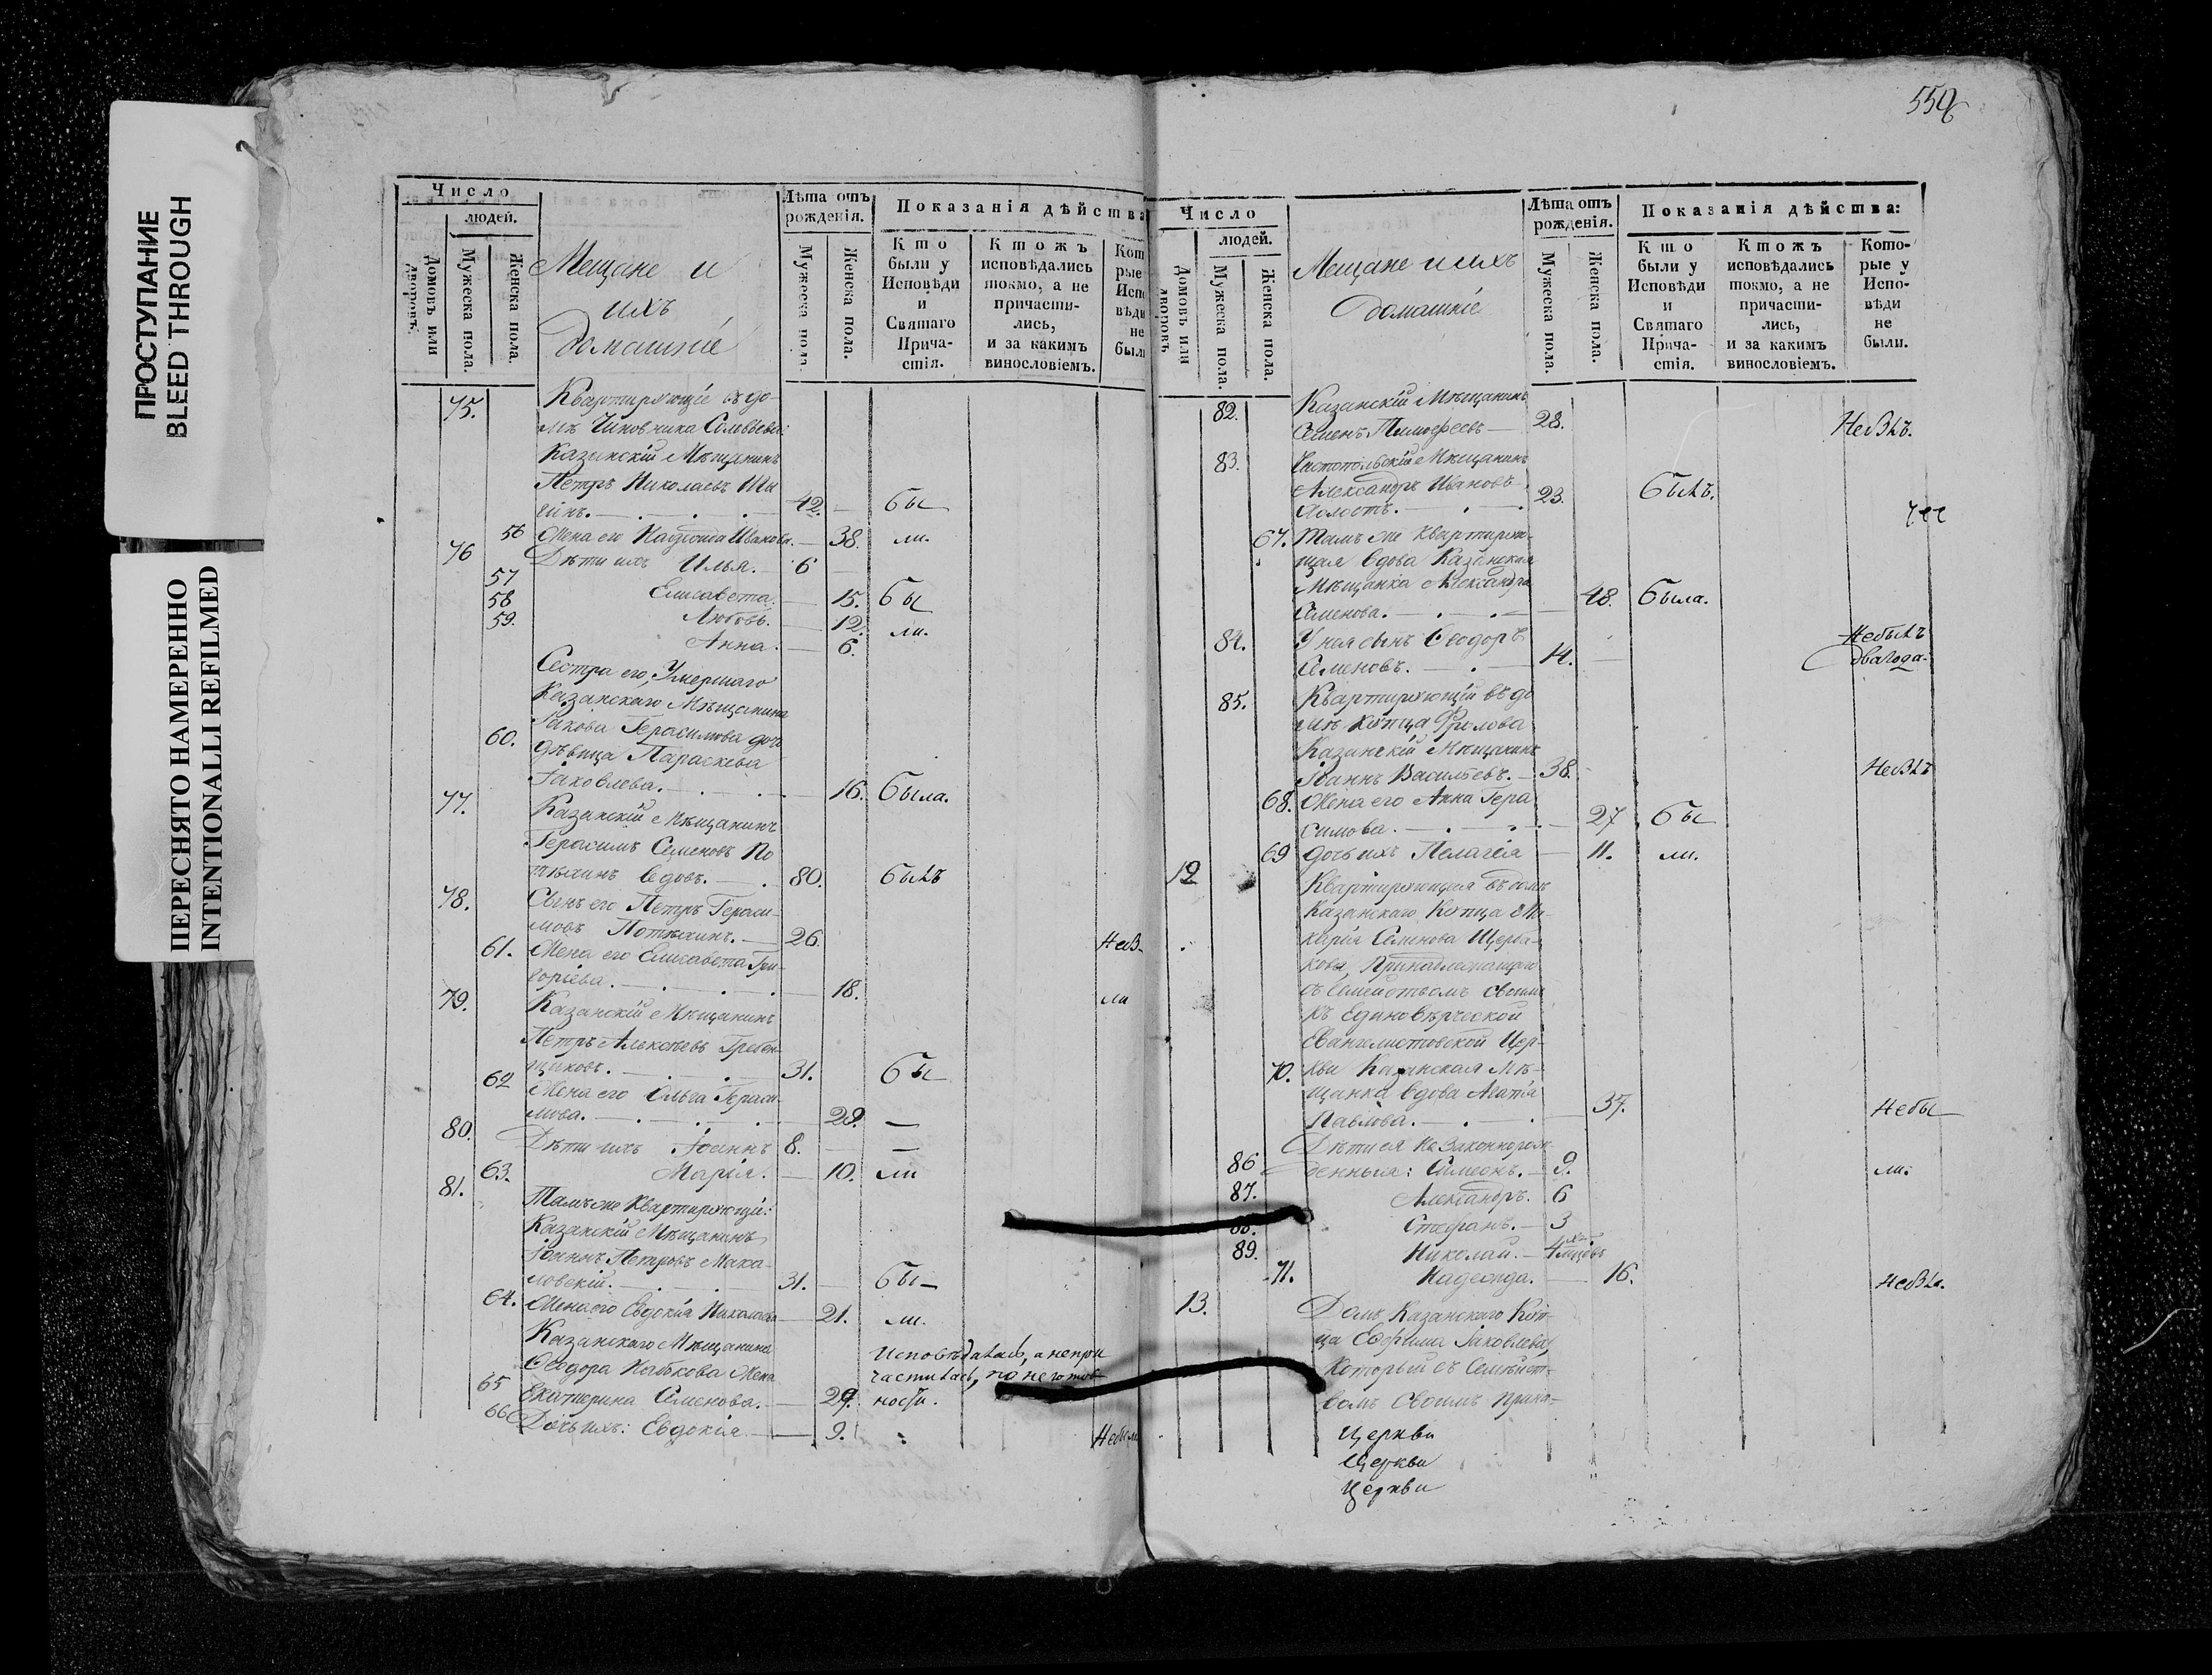 ПРОСТУПАНИЕ
BLEED THROUGH
ПЕРЕСНЯТО НАМЕРЕННО
INTENTIONALLI REFILMED
Число
людей.
Домовъ или дворовъ.
Мужеска пола.
Женска пола.
Мещане и
ихъ
домашніе
Лѣта отъ
рожденія.
Мужеска пола
Женска пола.
Показанія дѣйства
Кто
были у
Исповѣди
и
Святаго
Прича-
стія.
Ктожъ
исповѣдались
токмо, а не
причасти-
лись,
и за какимъ
винословіемъ.
Кот
рые
Испо
вѣди
не
были
75. Квартирующіе въ до-
мѣ Чиновника
Казанскій Мѣщанинъ
Петръ Николаевъ
42. бы
56 Жена его Надежда Иванова. 38. ли.
76 Дѣти ихъ Илья. 6
57 Елисавета. 15. бы
58 Любовь. 12. ли.
59. Анна. 6.
Сестра его, Умершаго
Казанскаго Мѣщанина
Іакова Герасимова дочь
60. дѣвица Параскева
Іаковлева. 16. была.
77. Казанскій Мѣщанинъ
Герасимъ Семеновъ По
тѣхинъ вдовъ. 80. былъ
78. Сынъ его Петръ Гераси-
мовъ Потѣхинъ. 26. Небы-
61. Жена его Елисавета Гри-
горіева. 18. ли
79. Казанскій Мѣщанинъ
Петръ Алексѣевъ Гребен-
щиковъ. 31. бы
62 Жена его Ольга Гераси-
мова. 29. —
80. Дѣти ихъ Іоаннъ 8. —
63. Марія. 10. ли
81. Тамъ же Квартирующіе:
Казанскій Мѣщанинъ
Іоаннъ Петровъ Мака-
ловскій. 31. бы-
64. Жена его Евдокія Николаева 21. ли.
Казанскаго Мѣщанина
Ѳеодора Жена
65 Екатерина Семенова. 29.
Исповѣдалась, а непри
частилась, по неготов
ности.
66 Дочь ихъ: Евдокія. 9. Небыли
559
Число
людей.
Домовъ или дворовъ
Мужеска пола.
Женска пола.
Мещане и ихъ
домашніе
Лѣта отъ
рожденія.
Мужеска пола.
Женска пола.
Показанія дѣйства:
Кто
были у
Исповѣди
и
Святаго
Прича-
стія.
Ктожъ
исповѣдались
токмо, а не
причасти-
лись,
и за какимъ
винословіемъ.
Кото-
рые у
Испо-
вѣди
не
были.
82. Казанскій Мѣщанинъ
Семенъ Тимофеевъ 28. Небылъ.
83. Чистопольскій Мѣщанинъ
Александръ Ивановъ
Холостъ. 23. былъ.
67. Тамъ же Квартирую-
щая вдова Казанская
Мѣщанка Александра
Семенова. 48. была.
84. У нея сынъ Ѳеодоръ
Семеновъ. 14. Небылъ
два года.
85. Квартирующій въ до
мѣ купца Фролова
Казанскій Мѣщанинъ
Іоаннъ Васильевъ. 38. Небылъ
68. Жена его Анна Гера
симова. 27 бы
69 дочь ихъ Пелагея 11. ли.
12 Квартирующая въ домѣ
Казанскаго Купца Ма-
карія Семенова Щерба-
кова, Принадлежащаго
съ Семействомъ своимъ
къ Единовѣрческой
Евангелистовской Цер-
70. кви Казанская Мѣ-
щанка вдова Агапія
Павлова. 37. Небы
Дѣти ея Незаконнорож-
86 денныя: Симеонъ. 9. ли.
87. Александръ. 6
88. Стефанъ. 3
89. Николай. 4 мѣсцовъ
71. Надежда. 16. Небыла.
13. Домъ Казанскаго Куп-
ца Ефрима Іаковлева,
который съ Семѣйст-
вомъ Своимъ Прина-
Церкви
Церкви
Церкви